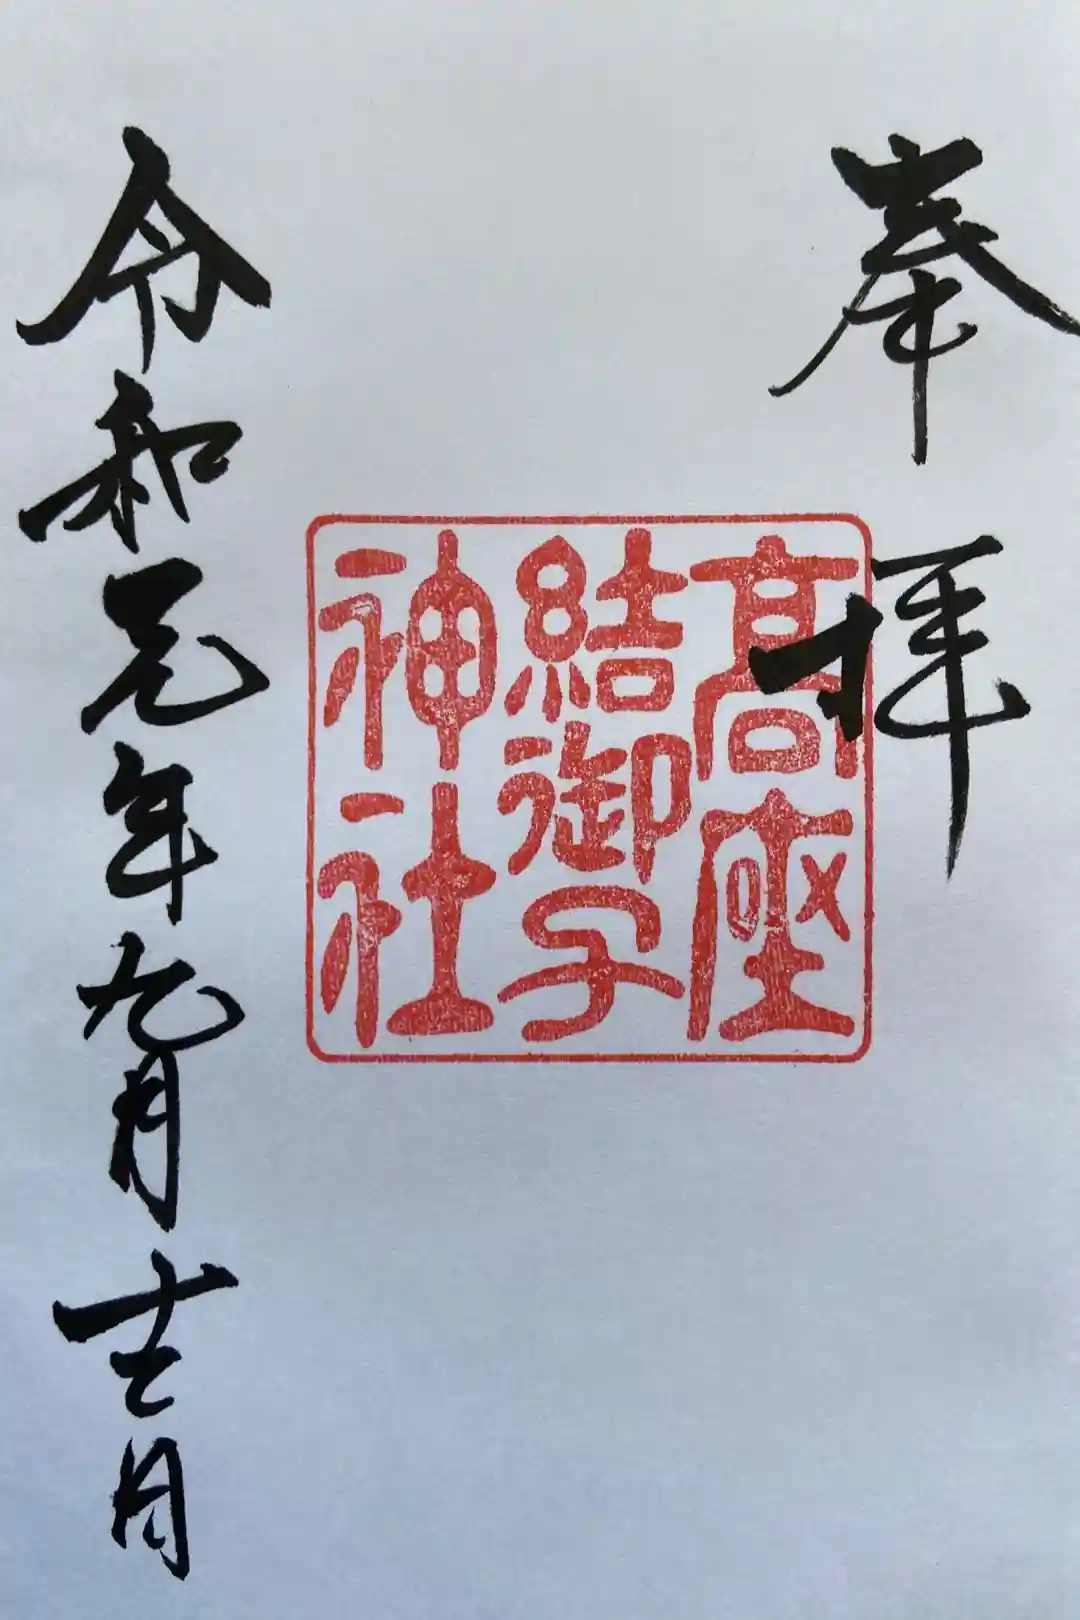 奉拝
高座
結御子
神社
令和元年九月十二日